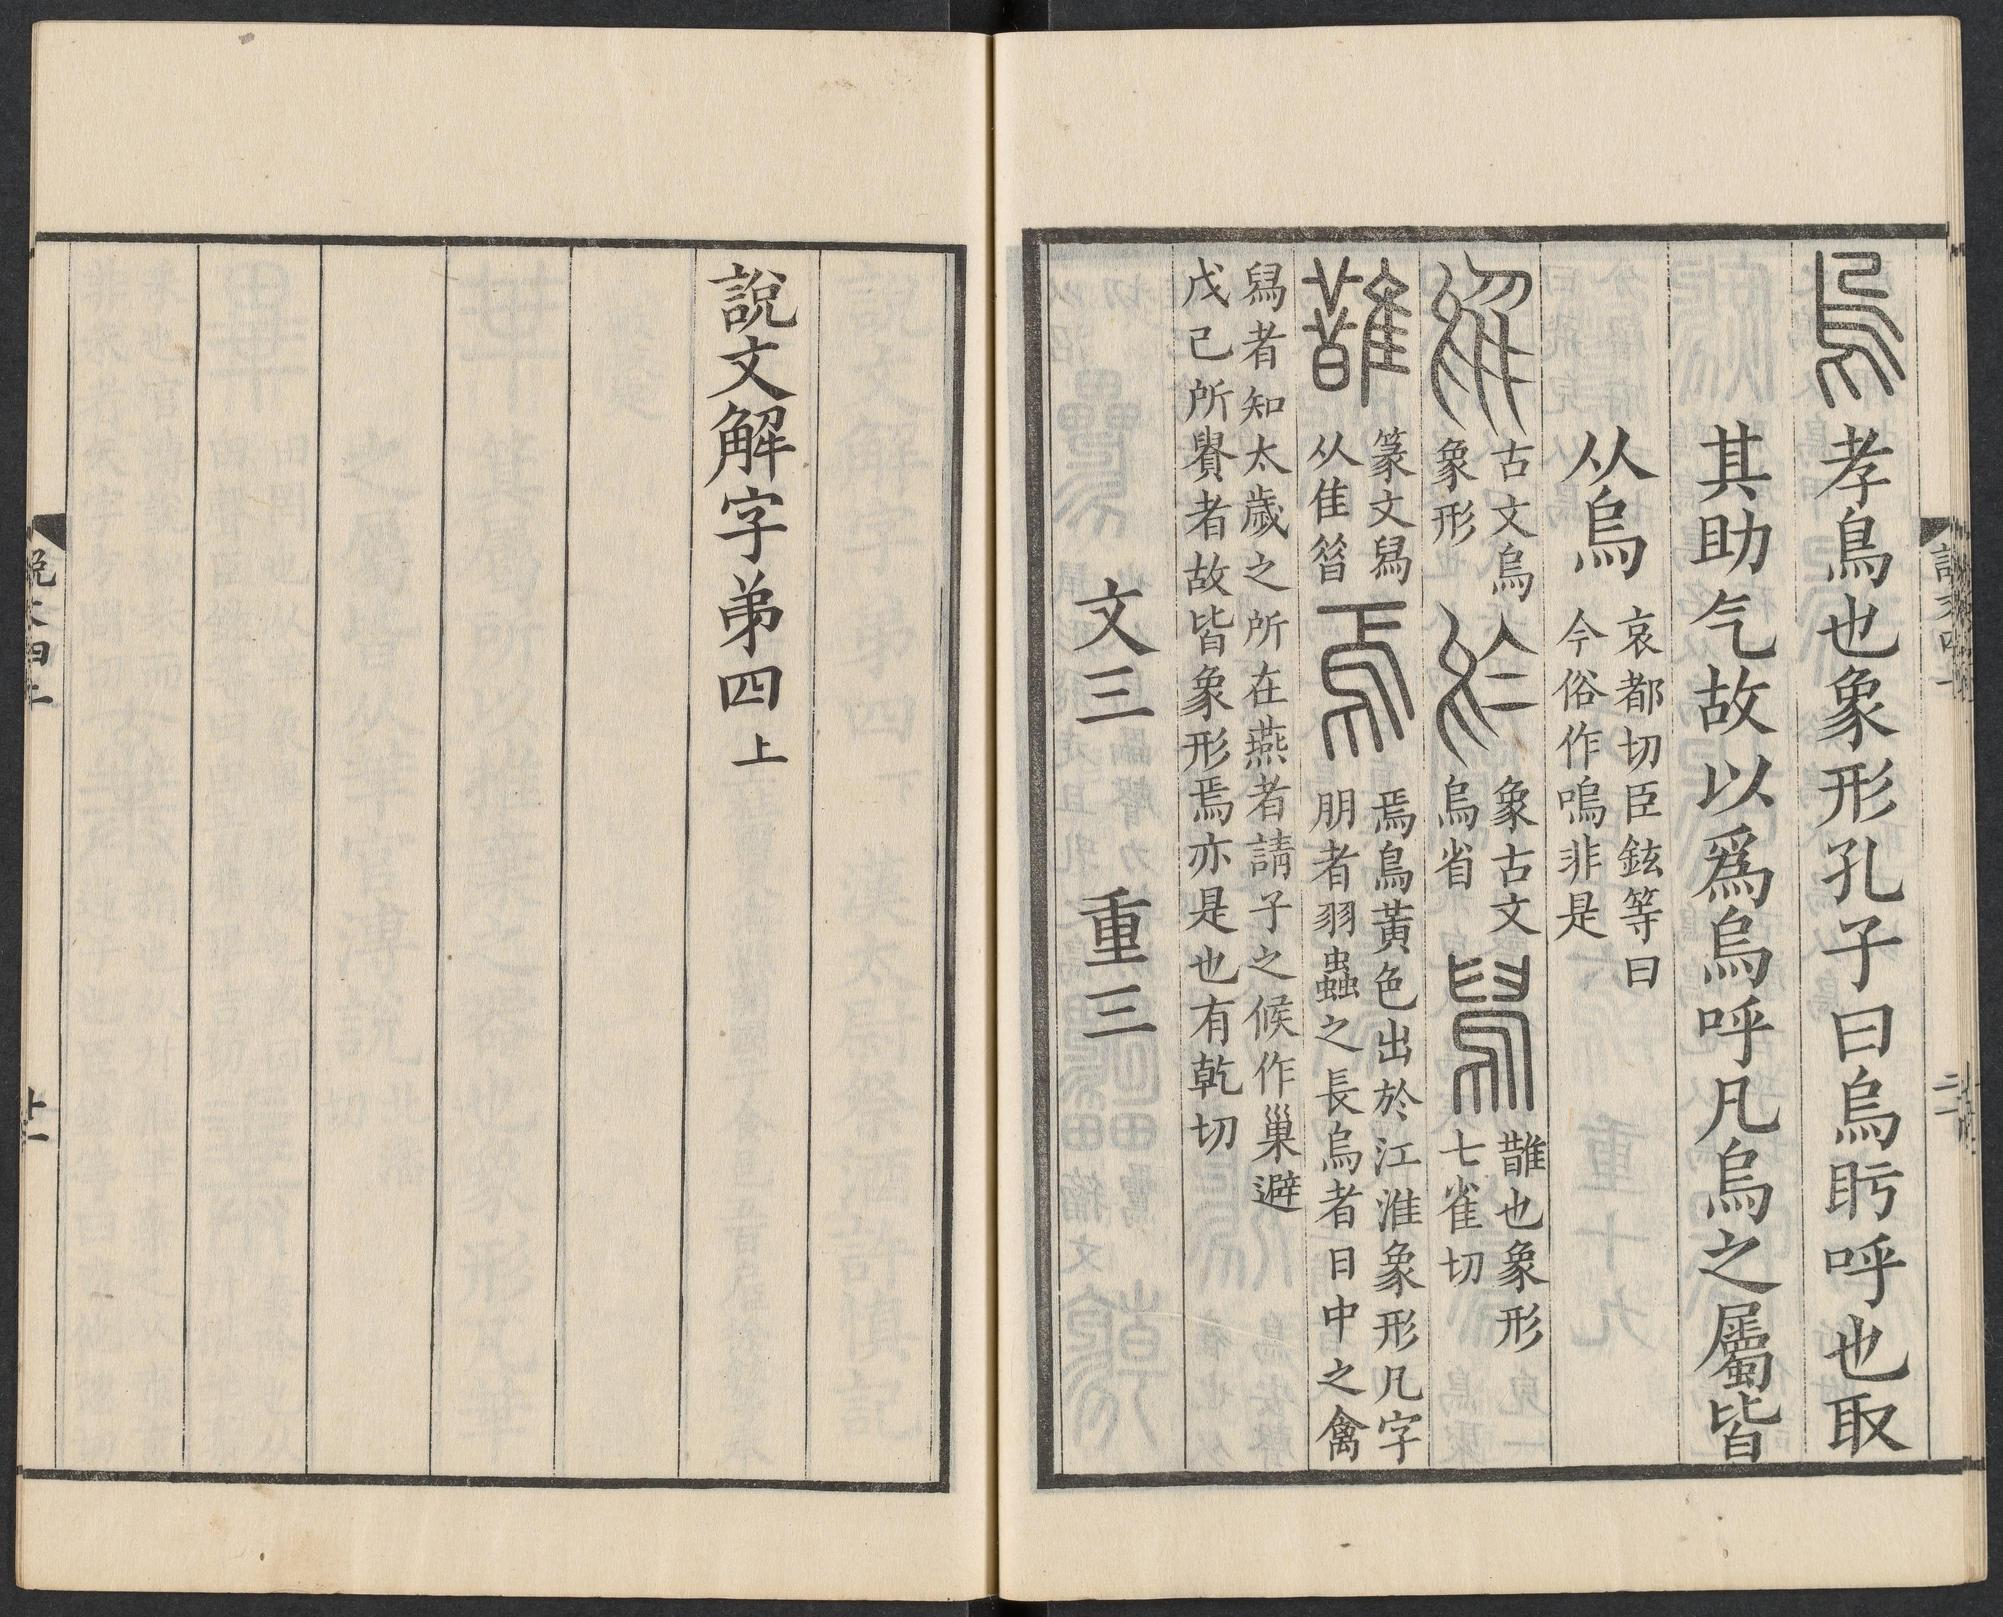 烏孝鳥也象形孔子曰烏𥄎呼也取
其助气故以爲烏呼凡烏之屬皆
从烏哀都切臣鉉等曰
今俗作嗚非是
古文烏
象形
象古文
烏省
舄䧿也象形
七雀切
䧿篆文舄
从隹㫺
焉焉鳥黃色出於江淮象形凡字
朋者羽蟲之長烏者日中之禽
舄者知太歲之所在燕者請子之候作巢避
戊己所貴者故皆象形焉亦是也有乾切
文三 重三
說文解字弟四上
十一